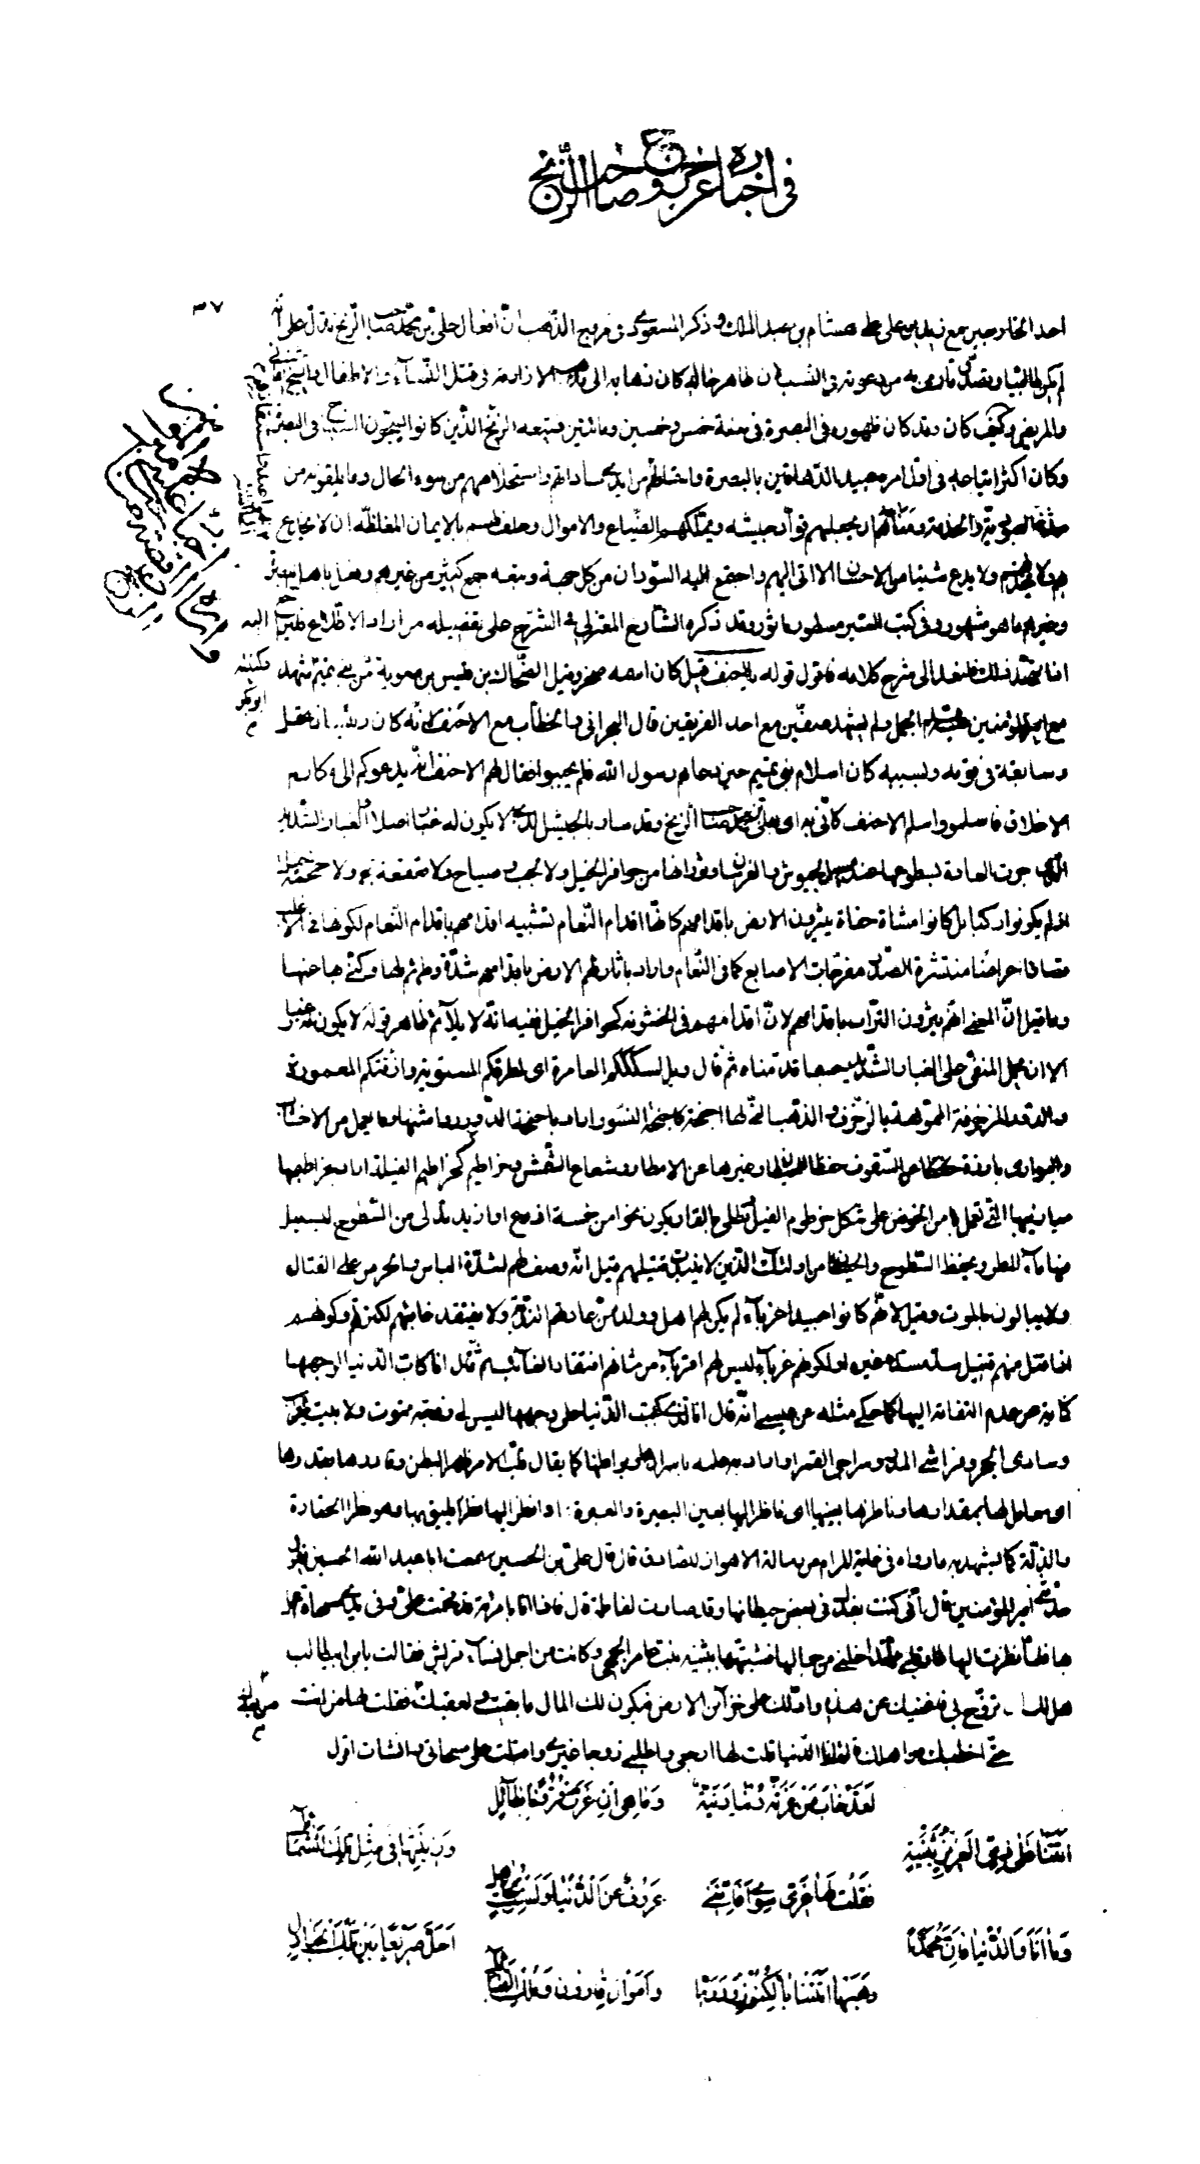 في اخباره ع عن خروج صاحب الزنج
٣٧
احد الخارجين مع زيد بن علي على هشام بن عبد الملك وذكر المسعودي في مروج الذهب ان افعال علي بن محمد صاحب الزنج تدل على انه
لم يكن طالبيا وتصدق ما رمي به من دعوته في النسب لان ظاهر حاله كان ذهابه الى مذهب الازارقة في قتل النساء والاطفال والشيخ الفاني
والمريض وكيف كان وقد كان ظهوره في البصرة في سنة خمس وخمسين ومائتين فتبعه الزنج الذين كانوا يكسحون السباخ في البصرة
وكان اكثر اتباعه في اول امره عبيد الدهاقين بالبصرة واستنقاذهم من ايدي ساداتهم واستخلاصهم من سوء الحال وما يلقونه من
العبودية والخدمة ومناهم ان يجعلهم قواد جيشه ويملكهم الضياع والاموال وحلف لهم بالايمان المغلظة ان لا يخادع
بهم ولا يخذلهم ولا يدع شيئا من الاحسان الا اتى اليهم واجتمع اليه السودان من كل جهة وتبعه جمع كثير من غيرهم وفعل باهل البصرة
وغيرهم ما هو مشهور وفي كتب السير مسطور ماثور وقد ذكره الشارح المعتزلي في الشرح على تفصيله من اراد الاطلاع فليرجع اليه
اذا تمهد ذلك فلنعد الى شرح كلامه فاقول قوله يا احنف قيل كان اسمه صخر وقيل الضحاك بن قيس بن معوية من بني تميم شهد
وكنيته ابو بحر
مع امير المؤمنين الجمل ولم يشهد صفين مع احد الفريقين قال البحراني والخطاب مع الاحنف لانه كان رئيسا ذا عقل
وسابقة في قومه وبسببه كان اسلام بني تميم حين دعاهم رسول الله فلم يجيبوا فقال لهم الاحنف انه يدعوكم الى مكارم
الاخلاق فاسلموا واسلم الاحنف كاني به اي بعلي بن محمد صاحب الزنج وقد سار بالجيش الذي لا يكون له غبار اصلا او الغبار الشديد
الذي جرت العادة بسطوعها عند مسير الجيوش والفرسان وثورانها من حوافر الخيل ولا لجب وصياح ولا قعقعة لجم ولا حمحمة خيل
اذ لم يكونوا ركبانا بل كانوا مشاة حفاة يثيرون الارض باقدامهم كانها اقدام النعام تشبيه اقدامهم باقدام النعام لكونها في الاغلب
قصارا عراضا منتشرة الصدر مفرجات الاصابع كما في النعام واراد باثارتهم الارض باقدامهم شدة وطئهم لها وكنى بها عنها
وما قيل ان المعنى انهم يثيرون التراب باقدامهم لان اقدامهم في الخشونة كحوافر الخيل ففيه انه لا يلائم ظاهر قوله لا يكون له غبار
الا ان يحمل المنفي على الغبار الشديد حسبما قدمناه ثم قال ويل لسكككم العامرة اي لطرقكم المستوية وازقتكم المعمورة
والدور المزخرفة المموهة بالزخرف والذهب التي لها اجنحة كاجنحة النسور اراد باجنحة الدور رواشنها وما يعمل من الاخشاب
والبواري بارزة عن السقوف حفظا للحيطان وغيرها عن الامطار وشعاع الشمس وخراطيم كخراطيم الفيلة اراد بخراطيمها
ميازيبها التي تعمل من الخوص على شكل خرطوم الفيل وتطلى بالقار ويكون نحوا من خمسة اذرع او ازيد يتدلى من السطوح ليسيل
منها ماء المطر ويحفظ السطوح والحيطان من اولئك الذين لا يندب قتيلهم قيل انه وصف لهم لشدة الباس والحرص على القتال
ولا يبالون بالموت وقيل لانهم كانوا عبيدا غرباء لم يكن لهم اهل وولد من عادتهم الندبة ولا يفتقد غائبهم لكثرتهم وكونهم
اذا قتل منهم قتيل سد مسده غيره او لكونهم غرباء ليس لهم اقرباء من شانهم افتقاد الغائب ثم قال انا كاب الدنيا لوجهها
كناية عن عدم التفاته اليها كما حكي مثله عن عيسى انه قال انا الذي كببت الدنيا على وجهها ليس لي زوجة تموت ولا بيت يخرب
وسادي الحجر وفراشي المدر وسراجي القمر او اراد به علمه باسرارها وبواطنها كما يقال قلب الامر ظهرا لبطن وقادرها بقدرها
اي معامل لها بمقدارها وناظرها بعينها اي ناظر اليها بعين البصيرة والعبرة او انظر اليها نظرا يليق بها وهو نظر الحقارة
والذلة كما يشهد به ما رواه في غاية المرام من رسالة الاهواز للصادق قال قال علي بن الحسين سمعت ابا عبد الله الحسين يقول
حدثني امير المؤمنين قال اني كنت بفدك في بعض حيطانها وقد صارت لفاطمة قال فاذا انا بامراة قد هجمت علي وفي يدي مسحاة اعمل
بها فلما نظرت اليها طار قلبي مما تداخلني من جمالها فشبهتها ببثينة بنت عامر الجمحي وكانت من اجمل نساء قريش فقالت يا بن ابي طالب
هل لك ان تزوج بي فاغنيك عن هذه وادلك على خزائن الارض فيكون لك المال ما بقيت ولعقبك فقلت لها من انت
حتى اخطبك من اهلك قالت انا الدنيا قلت لها ارجعي واطلبي زوجا غيري واقبلت على مسحاتي وانشات اقول
لَقَدْ خَابَ مَنْ غَرَّتْهُ دُنْيَا دَنِيَّةٌ وَمَا هِيَ اِنْ غَرَّتْ قُرُونًا بِطَائِلِ
اَتَتْنَا عَلى زِيِّ الْعَزيزِ بُثَيْنَةٌ وَزِينَتُهَا فِي مِثْلِ تِلْكَ الشَّمَائِلِ
فَقُلْتُ لَهَا غُرِّي سِوَايَ فَاِنَّنِي عَزُوفٌ عَنِ الدُّنْيَا وَلَسْتُ بِجَاهِلِ
وَمَا اَنَا وَالدُّنْيَا فَاِنَّ مُحَمَّدًا اَحَلَّ صَرِيعًا بَيْنَ تِلْكَ الْجَنَادِلِ
وَهَبْهَا اَتَتْنَا بِالْكُنُوزِ وَدُرِّهَا وَاَمْوَالِ قَارُونَ وَمُلْكِ الْقَبَائِلِ